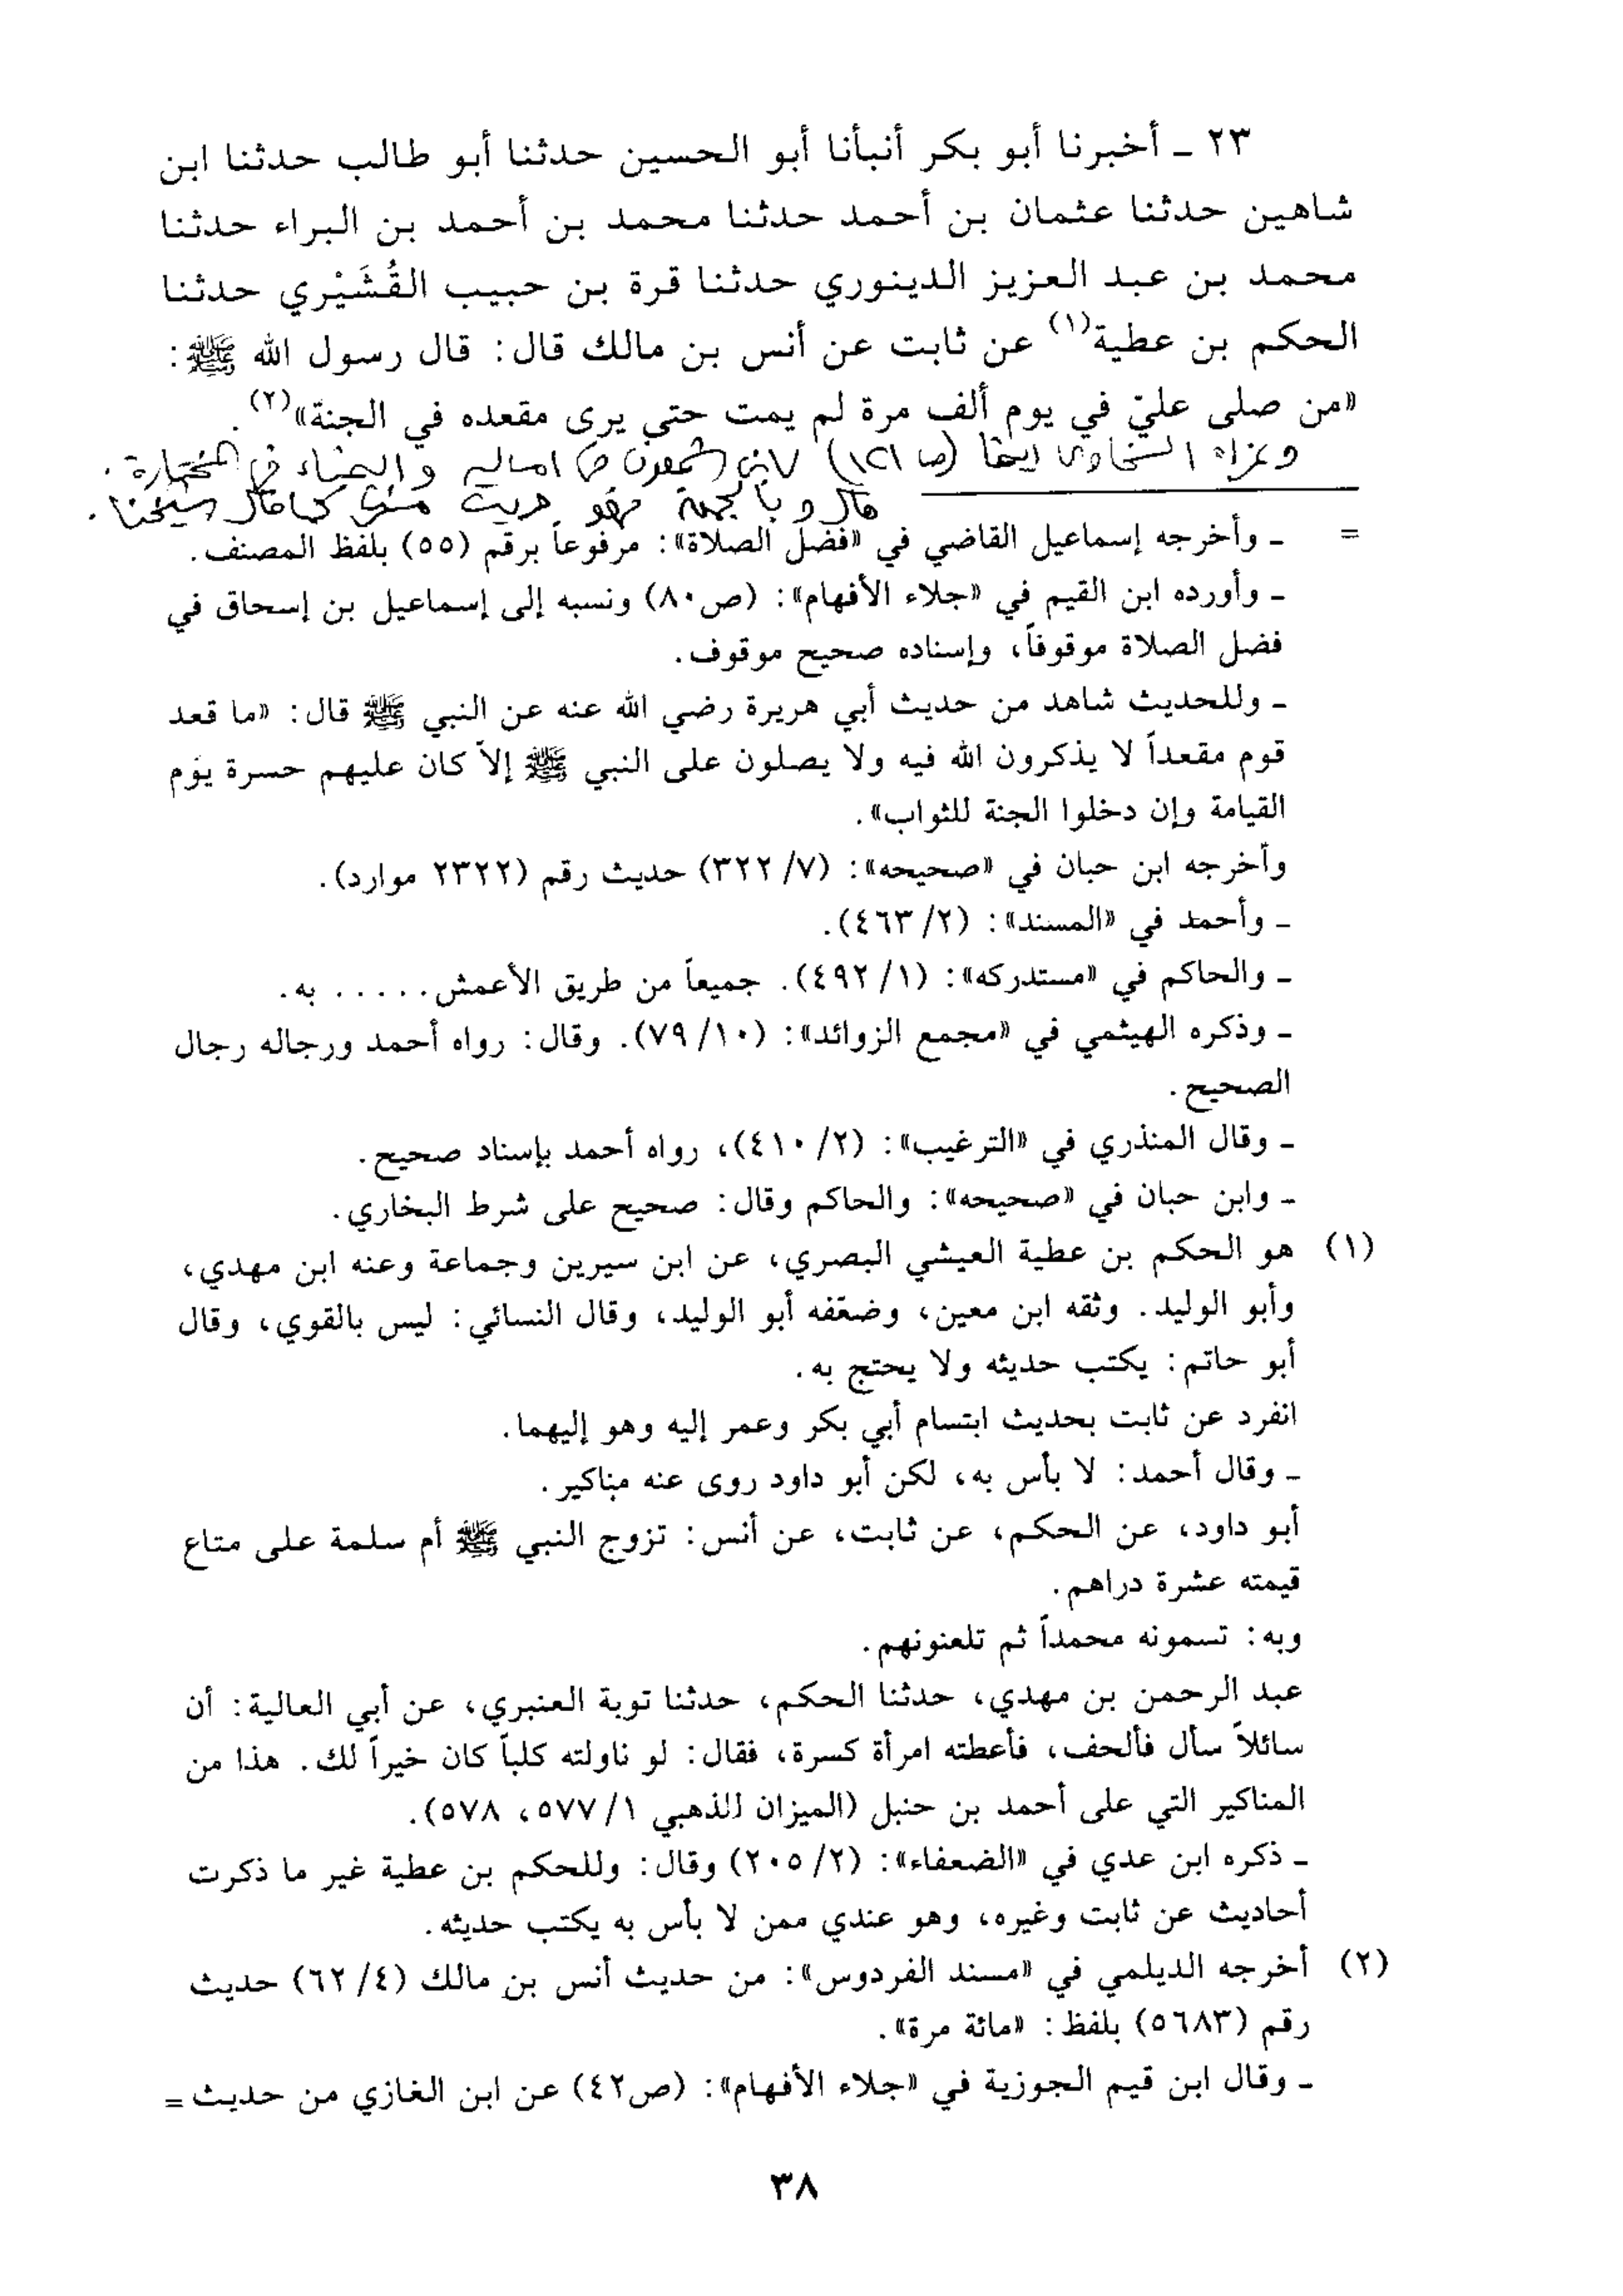 ٢٣ ـ أخبرنا أبو بكر أنبأنا أبو الحسين حدثنا أبو طالب حدثنا ابن
شاهين حدثنا عثمان بن أحمد حدثنا محمد بن أحمد بن البراء حدثنا
محمد بن عبد العزيز الدينوري حدثنا قرة بن حبيب القُشَيْري حدثنا
الحكم بن عطية(١) عن ثابت عن أنس بن مالك قال: قال رسول الله ﷺ:
«من صلى عليّ في يوم ألف مرة لم يمت حتى يرى مقعده في الجنة»(٢).
وعزاه السخاوي أيضا (ص ١٢١) لابن سمعون في اماليه والضياء في المختارة.
قال وبالجملة فهو حديث منكر كما قال شيخنا.
= ـ وأخرجه إسماعيل القاضي في «فضل الصلاة»: مرفوعاً برقم (٥٥) بلفظ المصنف.
ـ وأورده ابن القيم في «جلاء الأفهام»: (ص٨٠) ونسبه إلى إسماعيل بن إسحاق في
فضل الصلاة موقوفاً، وإسناده صحيح موقوف.
ـ وللحديث شاهد من حديث أبي هريرة رضي الله عنه عن النبي ﷺ قال: «ما قعد
قوم مقعداً لا يذكرون الله فيه ولا يصلون على النبي ﷺ إلاّ كان عليهم حسرة يوم
القيامة وإن دخلوا الجنة للثواب».
وأخرجه ابن حبان في «صحيحه»: (٣٢٢/٧) حديث رقم (٢٣٢٢ موارد).
ـ وأحمد في «المسند»: (٤٦٣/٢).
ـ والحاكم في «مستدركه»: (٤٩٢/١). جميعاً من طريق الأعمش..... به.
ـ وذكره الهيثمي في «مجمع الزوائد»: (٧٩/١٠). وقال: رواه أحمد ورجاله رجال
الصحيح.
ـ وقال المنذري في «الترغيب»: (٤١٠/٢)، رواه أحمد بإسناد صحيح.
ـ وابن حبان في «صحيحه»: والحاكم وقال: صحيح على شرط البخاري.
(١) هو الحكم بن عطية العيشي البصري، عن ابن سيرين وجماعة وعنه ابن مهدي،
وأبو الوليد. وثقه ابن معين، وضعّفه أبو الوليد، وقال النسائي: ليس بالقوي، وقال
أبو حاتم: يكتب حديثه ولا يحتج به.
انفرد عن ثابت بحديث ابتسام أبي بكر وعمر إليه وهو إليهما.
ـ وقال أحمد: لا بأس به، لكن أبو داود روى عنه مناكير.
أبو داود، عن الحكم، عن ثابت، عن أنس: تزوج النبي ﷺ أم سلمة على متاع
قيمته عشرة دراهم.
وبه: تسمونه محمداً ثم تلعنونهم.
عبد الرحمن بن مهدي، حدثنا الحكم، حدثنا توبة العنبري، عن أبي العالية: أن
سائلاً سأل فألحف، فأعطته امرأة كسرة، فقال: لو ناولته كلباً كان خيراً لك. هذا من
المناكير التي على أحمد بن حنبل (الميزان للذهبي ٥٧٧/١، ٥٧٨).
ـ ذكره ابن عدي في «الضعفاء»: (٢٠٥/٢) وقال: وللحكم بن عطية غير ما ذكرت
أحاديث عن ثابت وغيره، وهو عندي ممن لا بأس به يكتب حديثه.
(٢) أخرجه الديلمي في «مسند الفردوس»: من حديث أنس بن مالك (٦٢/٤) حديث
رقم (٥٦٨٣) بلفظ: «مائة مرة».
ـ وقال ابن قيم الجوزية في «جلاء الأفهام»: (ص٤٢) عن ابن الغازي من حديث =
٣٨